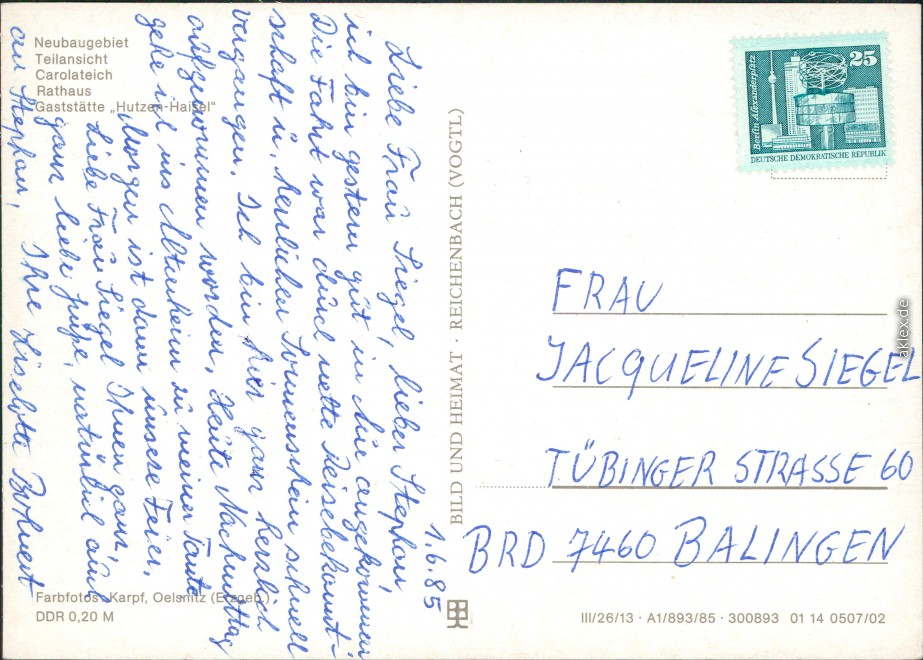 Neubaugebiet
Teilansicht
Carolateich
Rathaus
Gaststätte „Hutzen-Haisel"
1.6.85
Liebe Frau Siegel, lieber Stephan,
ich bin gestern gut in Aue angekommen
Die Fahrt war durch nette Reisebekannt-
schaft u. herrlichen Sonnenschein schnell
vergangen. Ich bin hier ganz herzlich
aufgenommen worden, heute Nachmittag
gehe ich ins Altenheim zu meiner Tante
Morgen ist dann unsere Feier.
Liebe Frau Siegel Ihnen ganz,
ganz liebe Grüße, natürlich auch
an Stephan, Ihre Liselotte
BILD UND HEIMAT · REICHENBACH (VOGTL)
Berlin Alexanderplatz
25
DEUTSCHE DEMOKRATISCHE REPUBLIK
FRAU
JACQUELINE SIEGEL
TÜBINGER STRASSE 60
BRD 7460 BALINGEN
Farbfotos: Karpf, Oelsnitz (Erzgeb.)
DDR 0,20 M
III/26/13 · A1/893/85 · 300893 01 14 0507/02
aklex.de